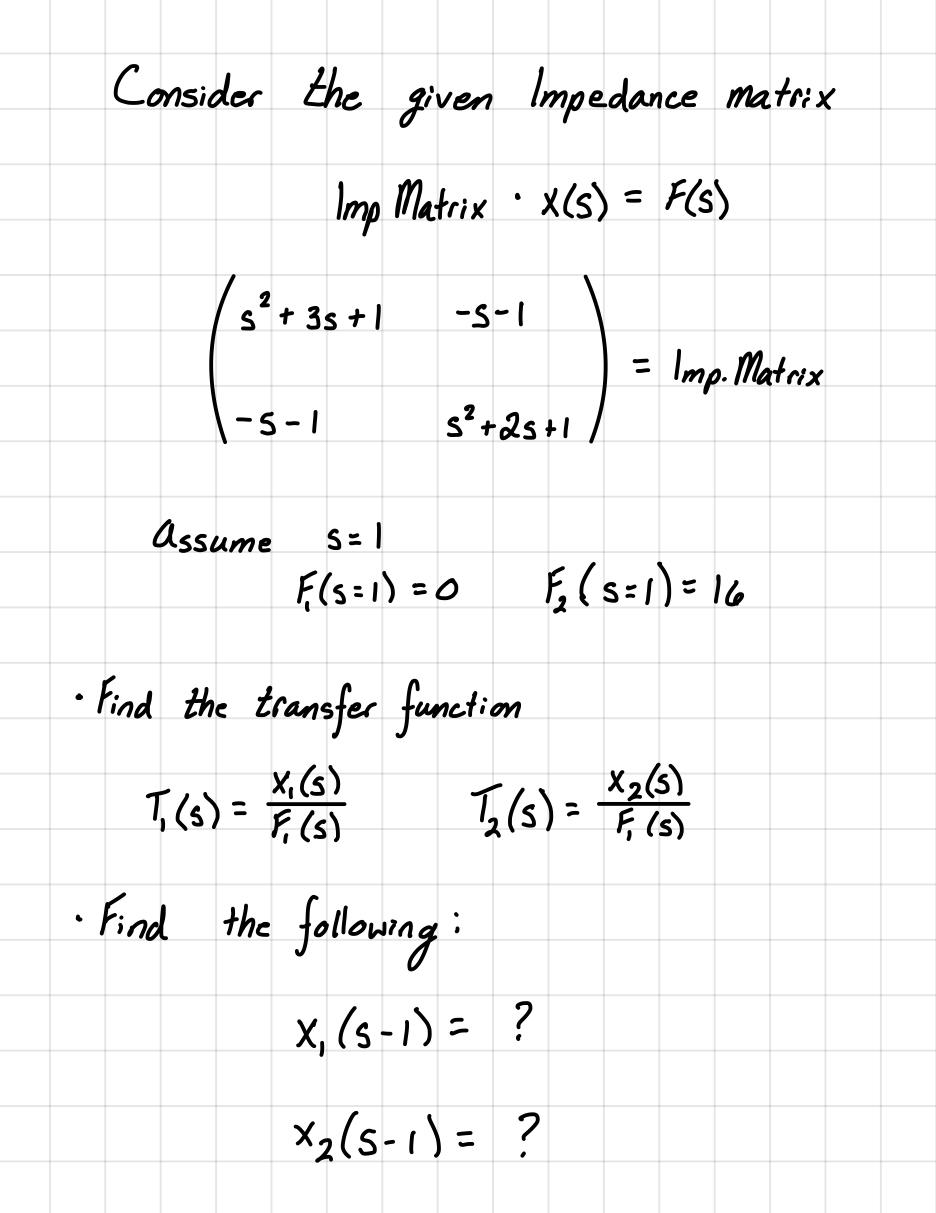 Consider the given Impedance matrix
Imp Matrix · X(s) = F(s)
( s² + 3s + 1   -s-1 )
( -s-1   s²+2s+1 ) = Imp. Matrix
Assume s=1
F₁(s=1) = 0   F₂(s=1) = 16
· Find the transfer function
T₁(s) = X₁(s) / F₁(s)   T₂(s) = X₂(s) / F₁(s)
· Find the following:
X₁(s-1) = ?
X₂(s-1) = ?